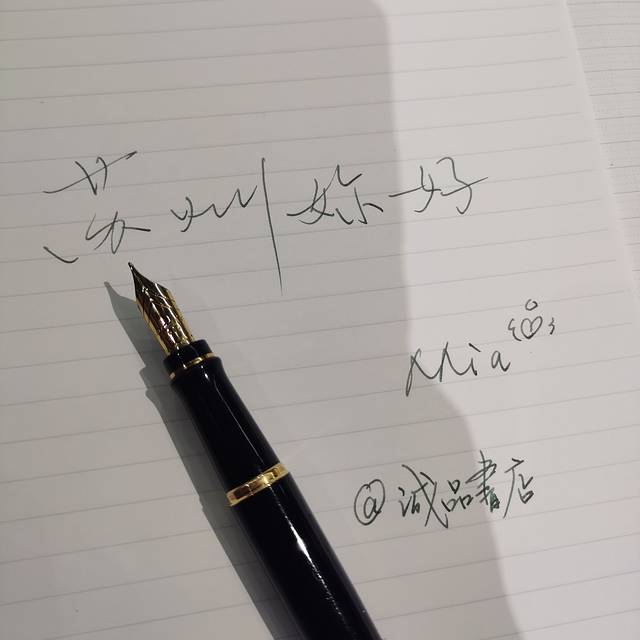 苏州妳好
Mia
@诚品書店